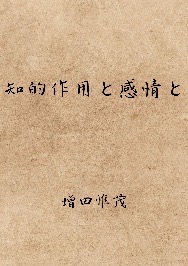 知的作用と感情と
増田惟茂